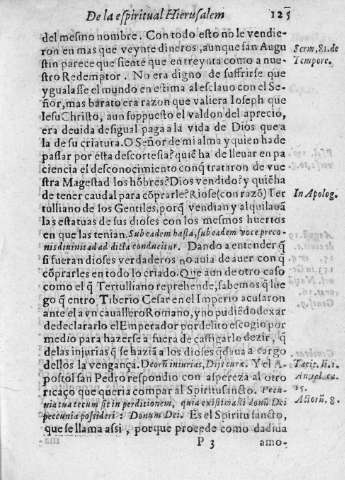 De la espiritual Hierusalem 125
del mesmo nombre. Con todo esto no le vendie-
ron en mas que veynte dineros, aunque san Augu
stin parece que siente que en treynta como a nue-
stro Redemptor. No era digno de suffrirse que
ygualasse el mundo en estima al esclauo con el Se-
ñor, mas barato era razon que valiera Ioseph que
Iesu Christo, aun suppuesto el valdon del aprecio,
era deuida desigual paga a la vida de Dios que a
la de su criatura. O Señor de mi alma y quien ha de
passar por esta descortesia? quiē ha de lleuar en pa
ciencia el desconocimiento cō q̄ trataron de vue
stra Magestad los hōbres? Dios vendido? y quiē ha
de tener caudal para cōprarle? Riose (con razō) Ter
tulliano de los Gentiles, porq̄ vendian y alquilauā
las estatuas de sus dioses con los mesmos huertos
en que las tenian. Sub eadem hasta, sub eadem voce preco-
nis diuinitas addicta conducitur. Dando a entender q̄
si fueran dioses verdaderos no auia de auer con q̄
cōprarlos en todo lo criado. Que aun de otro caso
como el q̄ Tertulliano reprehende, sabemos q̄ lue
go q̄ entro Tiberio Cesar en el Imperio acusaron
ante el a vn cauallero Romano, y no pudiēdo dexar
de declararlo el Emperador por delito escogio por
medio para hazerse a fuera de castigarlo dezir, q̄
de las injurias q̄ se haziā a los dioses q̄daua a cargo
dellos la vengança. Deorū iniurias, Dijs curæ. Y el A
postol san Pedro respondio con aspereza al otro
ricaço que queria comprar al Spiritu sancto. Pecu-
nia tua tecum sit in perditionem, quia existimasti donū Dei
pecunia possideri: Donum Dei. Es el Spiritu sancto,
que se llama assi, porque procede como dadiua
P 3 amo-
Serm. 81. de
Tempore.
In Apolog.
Tacit. li. 1.
Actorū. 8.